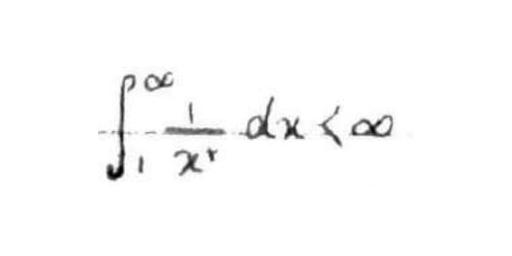 ∫₁^∞ 1/x^r dx < ∞